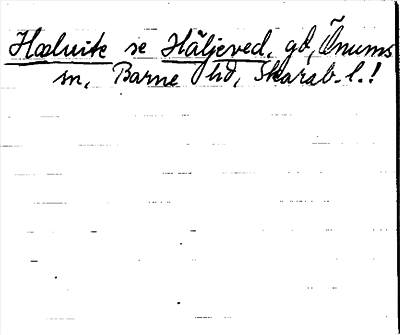 Holuite se Häljeved, gd, Önums
sn, Barne hd, Skarab. l.!